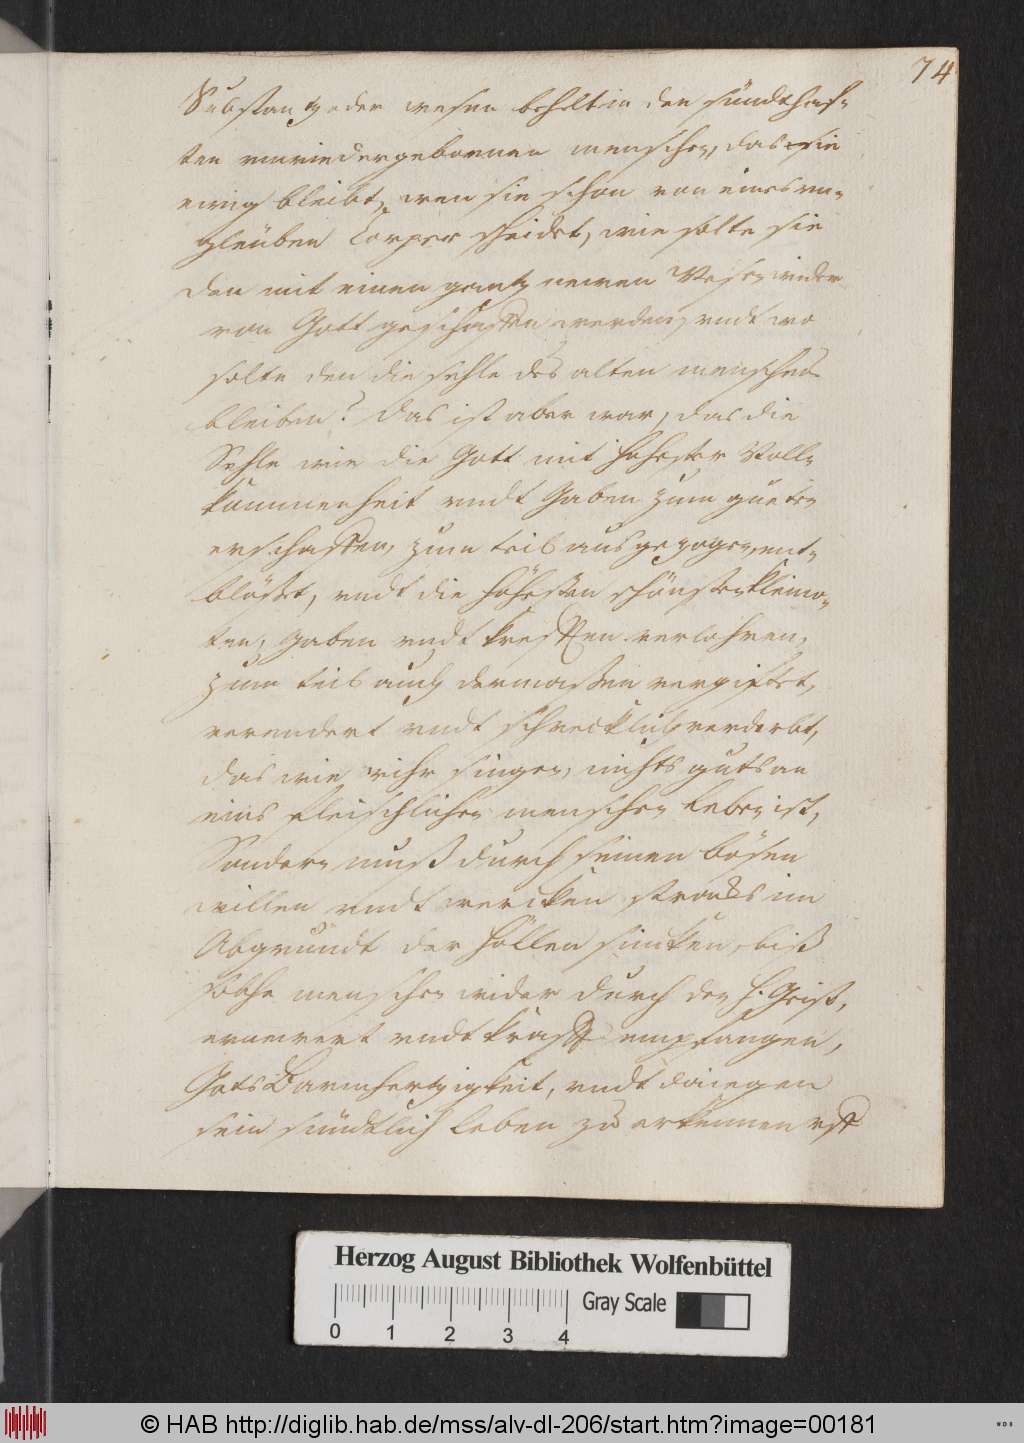 74
Substantz oder wesen behelt in den sündthaf-
ten unwiedergebornen menschen, das sie
ewig bleibt, wen sie schon von eines un-
gleuben Corper scheidet, wie solte sie
den mit einen gantz newen Wesen wider
von Gott geschaffen werden, undt wo
solte den die sehle des alten menschen
bleiben? Das ist aber war, das die
Sehle wie die Gott mit hohester Voll-
kommenheit undt Gaben zum gueten
erschaffen, zum teil ausgezogen, ent-
blöst, undt die höhesten schönsten kleino-
ten, gaben undt kreften verlohren,
zum teil auch dermassen vergiftet,
verendert undt schrecklich verderbt,
das wie wihr singen, nichts guts an
eins fleischlichen menschen leben ist,
Sondern muß durch seinen bösen
willen undt wercken stracks im
Abgrundt der Höllen sincken, biß
solche menschen wider durch den H. Geist,
ernewert undt krafft empfangen,
Gots Barmhertzigkeit, undt daiegen
sein sündtlich leben zu erkennen
Herzog August Bibliothek Wolfenbüttel
Gray Scale
0 1 2 3 4
© HAB http://diglib.hab.de/mss/alv-dl-206/start.htm?image=00181